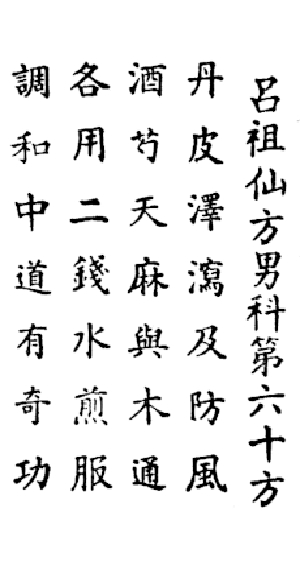 呂祖仙方男科第六十方
丹皮澤瀉及防風
酒芍天麻與木通
各用二錢水煎服
調和中道有奇功